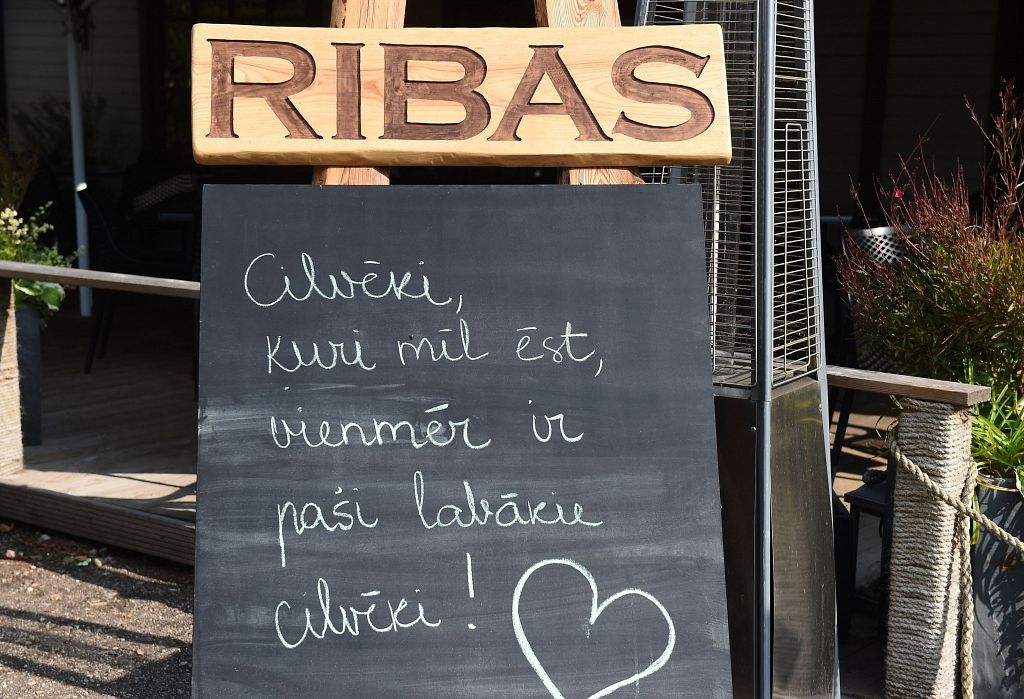 RIBAS
Cilvēki,
kuri mīl ēst,
vienmēr ir
paši labākie
cilvēki!